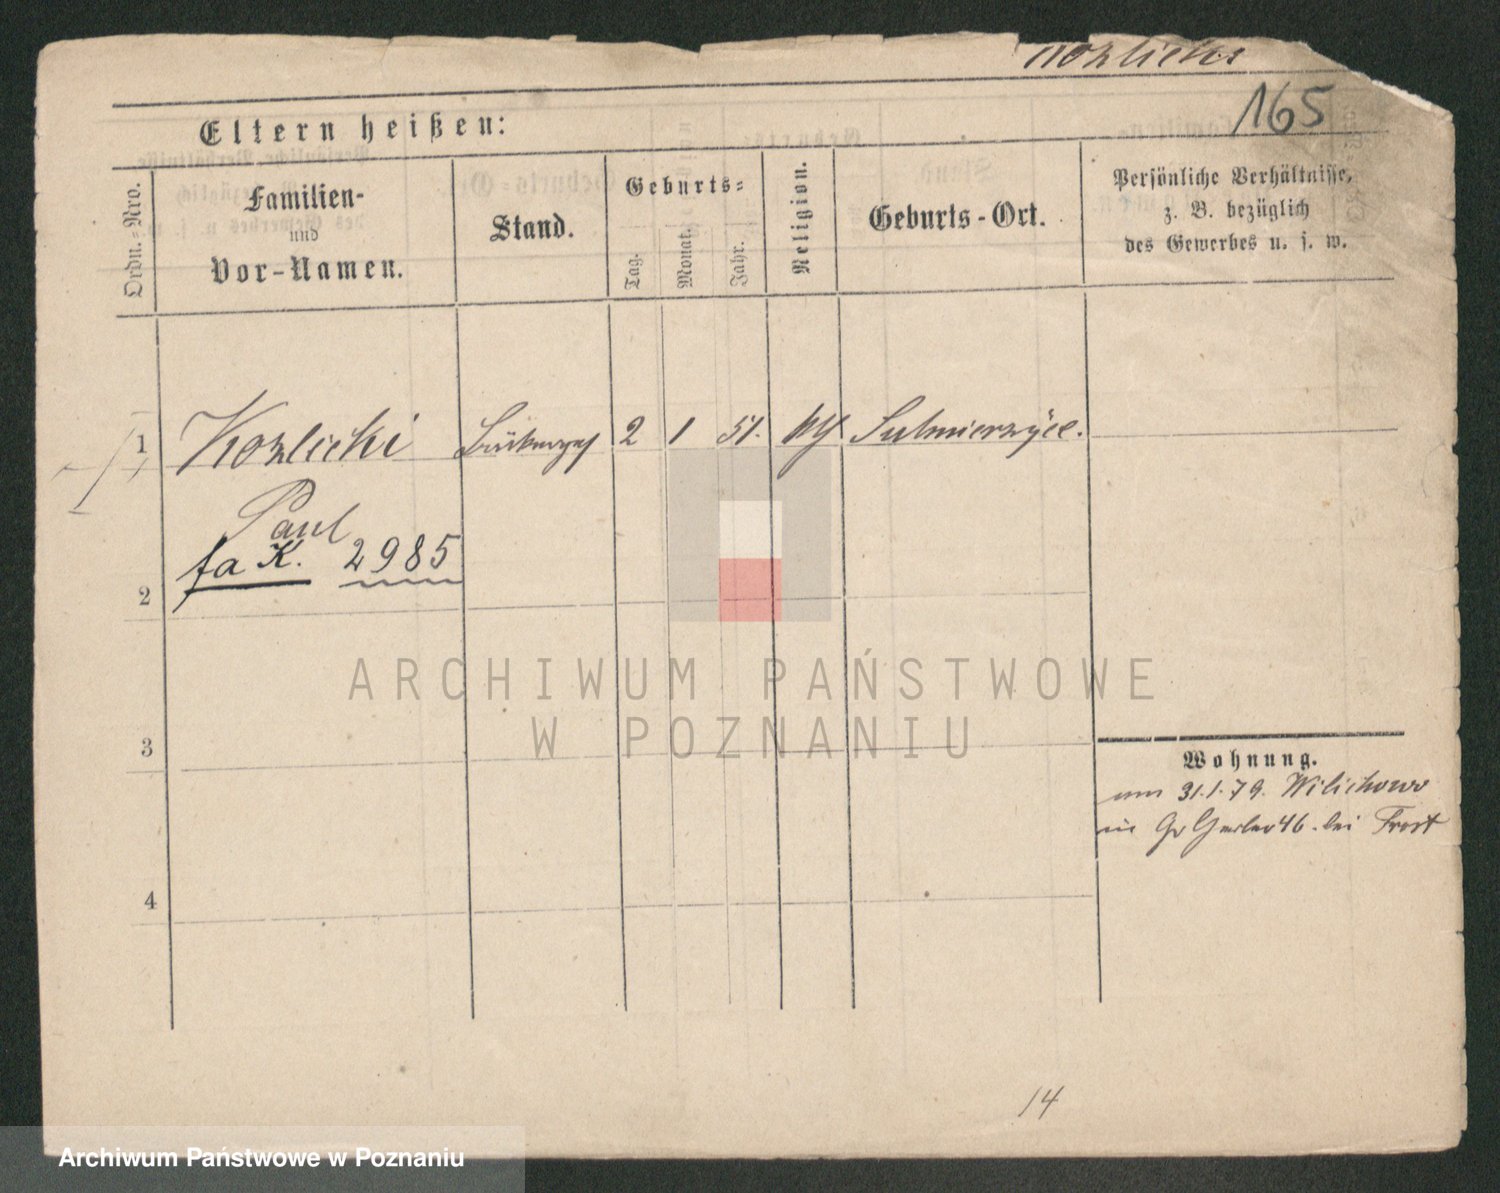 Kozlicki
165
Eltern heißen:
Ordn.-Nro.
Familien-
und
Vor-Namen.
Stand.
Geburts-
Tag.
Monat.
Jahr.
Religion.
Geburts-Ort.
Persönliche Verhältnisse,
z. B. bezüglich
des Gewerbes u. s. w.
1 Kozlicki 2 1 51. Sulmierzyce.
Paul
fa K. 2985
2
3
4
Wohnung.
31.1.79. Wilichowo
in Gr Gerber 46. bei Frost
14
ARCHIWUM PAŃSTWOWE
W POZNANIU
Archiwum Państwowe w Poznaniu